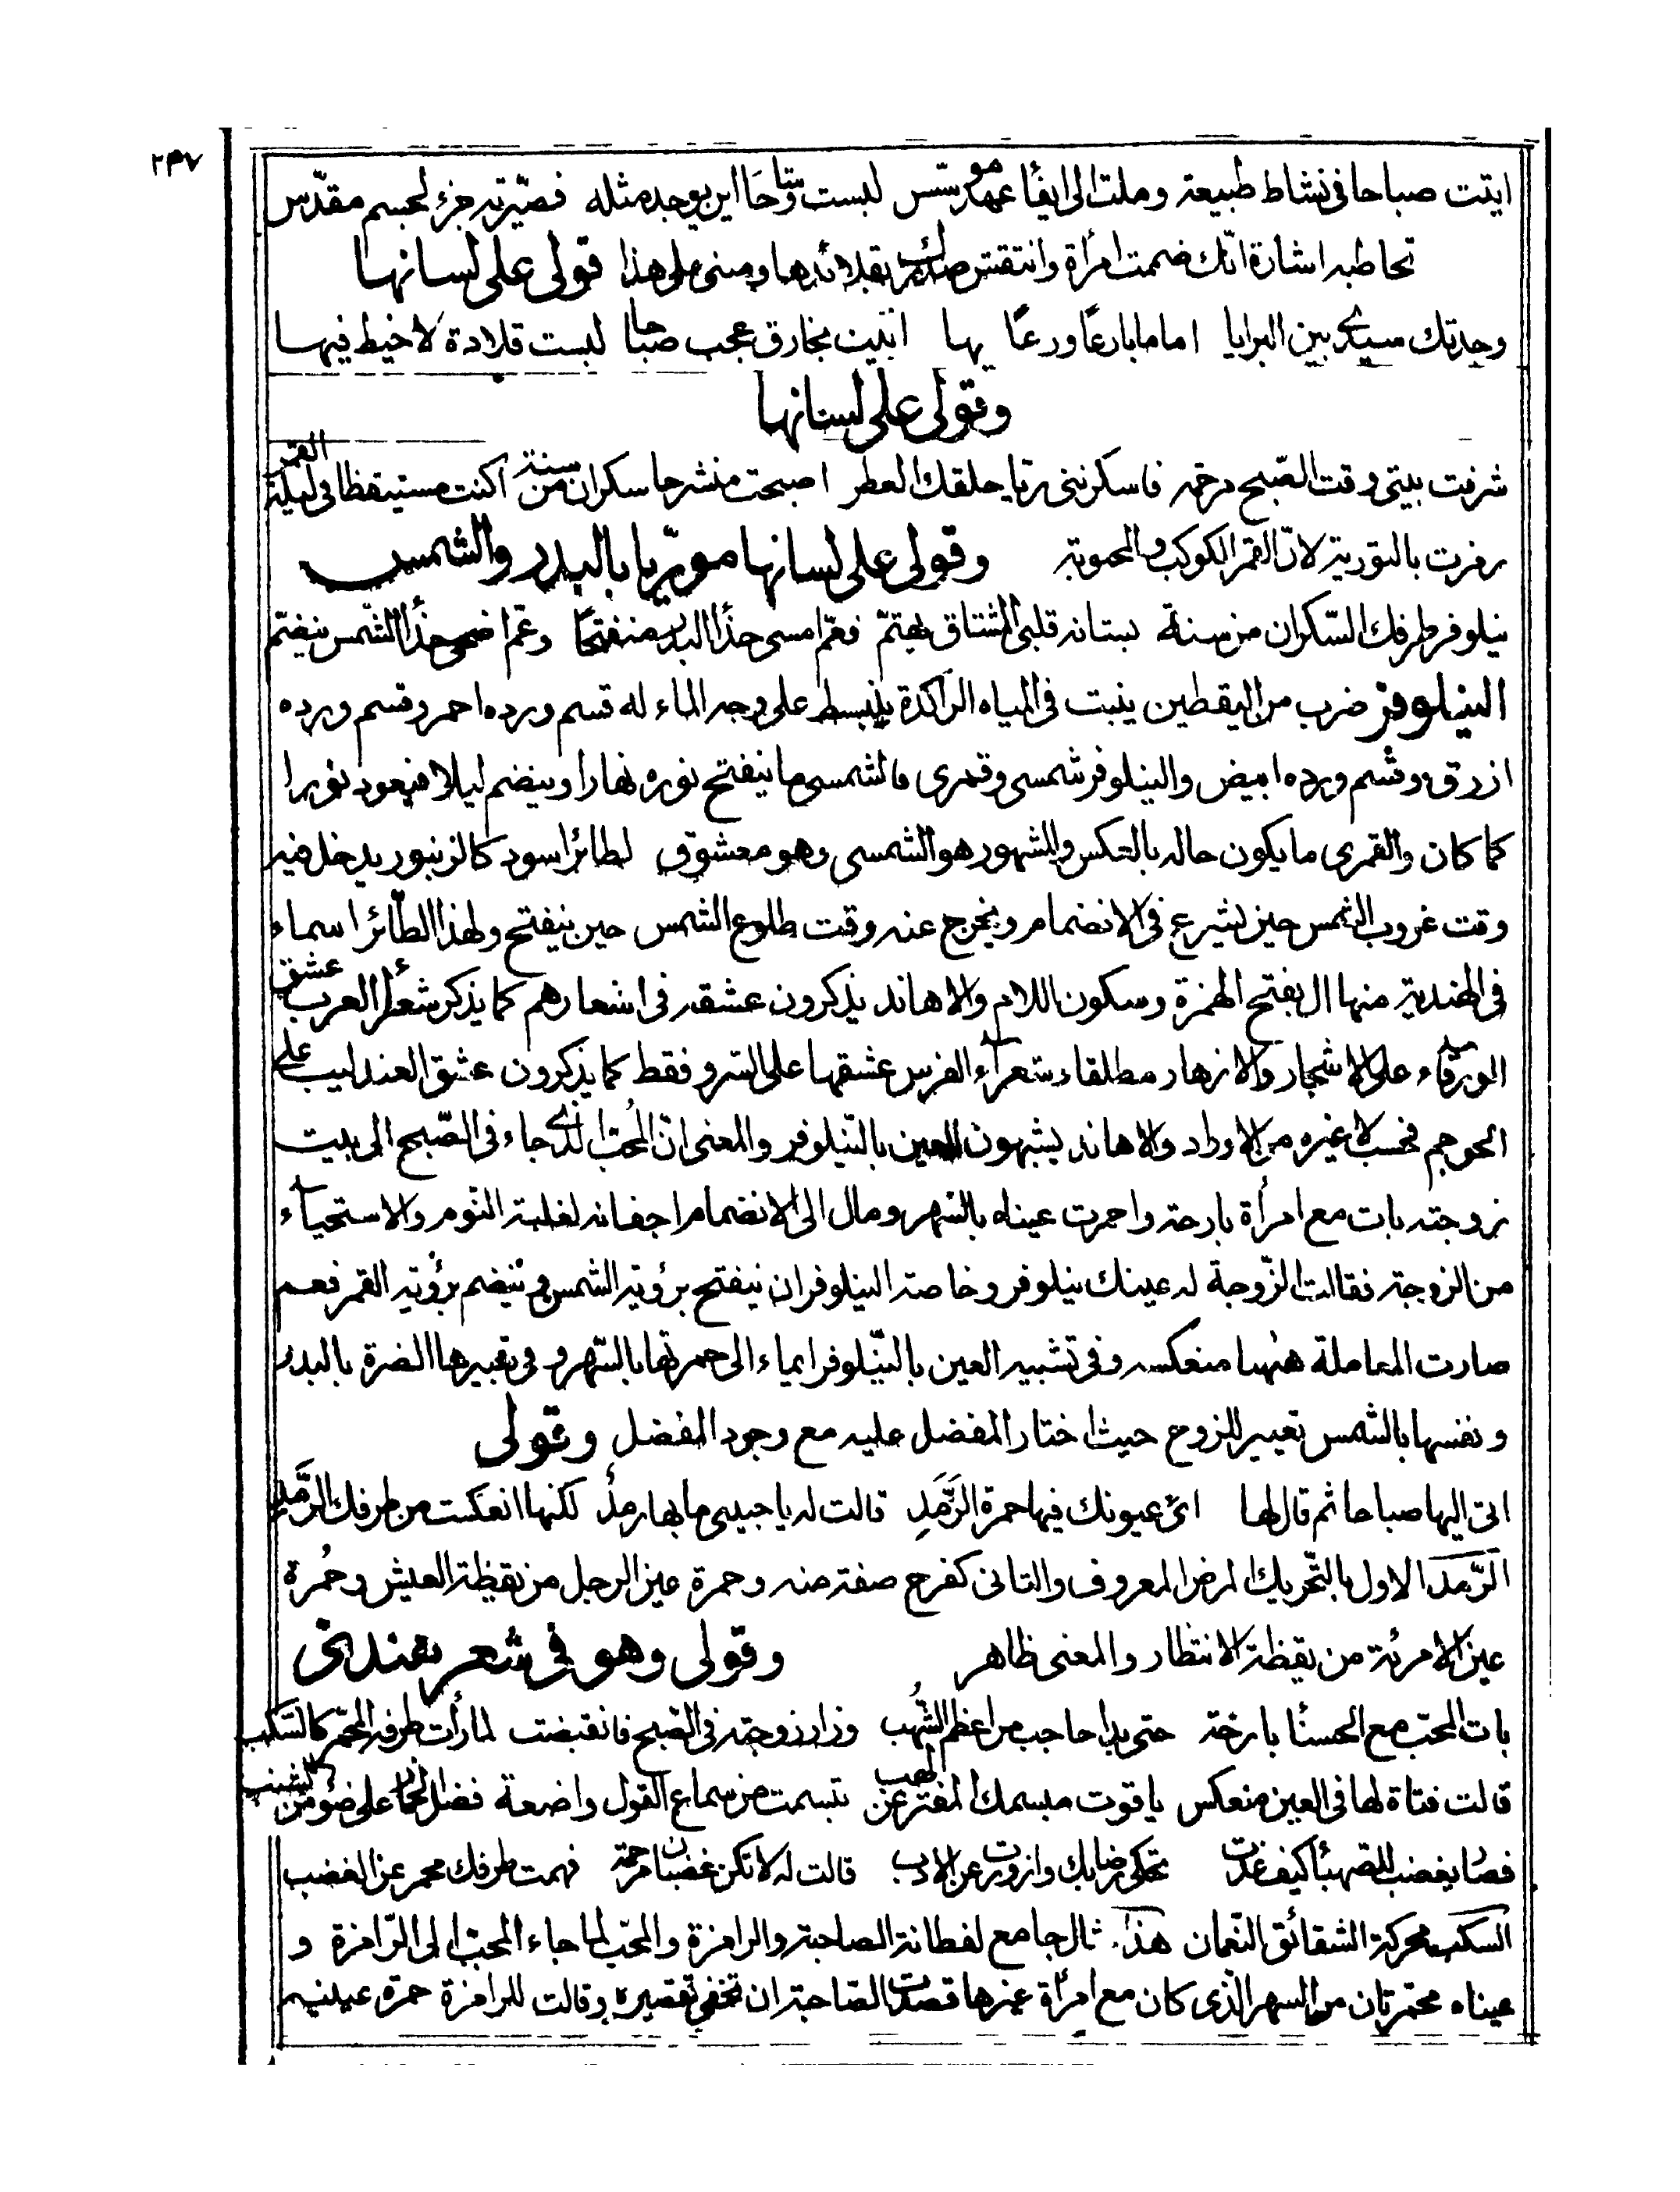 ٢٣٧
اتيت صباحا فى نشاط طبيعة وملت الى ايفاء عهد مؤسس لبست وشاحا اين يوجد مثله فصيرته جزء لجسم مقدس
تخاطبه اشارة انك ضممت امرأة وانتقش صدرك بقلائدها ومبنى على هذا قولى على لسانها
وجدتك سيدى بين البرايا اماما بارعا ورعا بها اتيت بخارق عجب صباحا لبست قلادة لا خيط فيها
وقولى على لسانها
شرفت بيتى وقت الصبح مرحمة فاسكرتنى ريا حلقك العطر اصبحت منشرحا سكران من سنة اكنت مستيقظا فى ليلة القمر
رمزت بالتورية لان القمر الكوكب والمحبوبة وقولى على لسانها موريا بالبدر والشمس
نيلوفر طرفك السكران من سنة بستانه قلبى المشتاق يهتم فعم امسى حذا البدر منفتحا وعم اضحى حذا الشمس ينضم
النيلوفر ضرب من اليقطين ينبت فى المياه الراكدة ينبسط على وجه الماء له قسم ورده احمر وقسم ورده
ازرق وقسم ورده ابيض والنيلوفر شمسى وقمرى فالشمسى ما ينفتح نوره نهارا وينضم ليلا فيعود نورا
كما كان والقمرى ما يكون حاله بالعكس والمشهور هو الشمسى وهو معشوق لطائر اسود كالزنبور يدخل فيه
وقت غروب الشمس حين يشرع فى الانضمام ويخرج عنه وقت طلوع الشمس حين ينفتح ولهذا الطائر اسماء
فى الهندية منها ال بفتح الهمزة وسكون اللام والاهاند يذكرون عشقه فى اشعارهم كما يذكر شعراء العرب عشق
الورقاء على الاشجار والازهار مطلقا وشعراء الفرس عشقها على السرو فقط كما يذكرون عشق العندليب على
الحوجم فحسب لا غيره من الاوراد والاهاند يشبهون العين بالنيلوفر والمعنى ان المحب الذى جاء فى الصبح الى بيت
زوجته بات مع امرأة بارحة واحمرت عيناه بالسهر ومال الى الانضمام اجفانه لغلبة النوم والاستحياء
من الزوجة فقالت الزوجة له عينك نيلوفر وخاصة النيلوفر ان ينفتح برؤية الشمس وينضم برؤية القمر فعم
صارت المعاملة ههنا منعكسه وفى تشبيه العين بالنيلوفر ايماء الى حمرتها بالسهر وفى تعبيرها الضرة بالبدر
ونفسها بالشمس تعيير للزوج حيث اختار المفضل عليه مع وجود المفضل وقولى
اتى اليها صباحا ثم قال لها ارى عيونك فيها حمرة الرمد قالت له يا حبيبى ما بها رمد لكنها انعكست من طرفك الرمد
الرمد الاول بالتحريك المرض المعروف والثانى كفرح صفة منه وحمرة عين الرجل من يقظة العيش وحمرة
عين الامرئة من يقظة الانتظار والمعنى ظاهر وقولى وهو فى شعر هندى
بات المحب مع الحسنا بارحة حتى بدا حاجب من اعظم الشهب وزار زوجته فى الصبح فانقبضت لما رأت طرفه المحمر كالسكب
قالت فتاة لها فى العين منعكس ياقوت مبسمك المفتر عن تبسمت من سماع القول واضعة فضل على ضوء من
فصا بغضب للصهبا كيف غدت تحكى رضابك وازورت عن الادب قالت له لا تكن غضبان مرحمة فهمت طرفك محمر عن الغضب
السكب محركة الشقائق النعمان هذا مثال جامع لفطانة الصاحبة والرامزة والمحب لما جاء المحب الى الرامزة و
عيناه محمرتان من السهر الذى كان مع امرأة غيرها قصدت الصاحبة ان تخفى تقصيره وقالت للرامزة حمرة عينيه